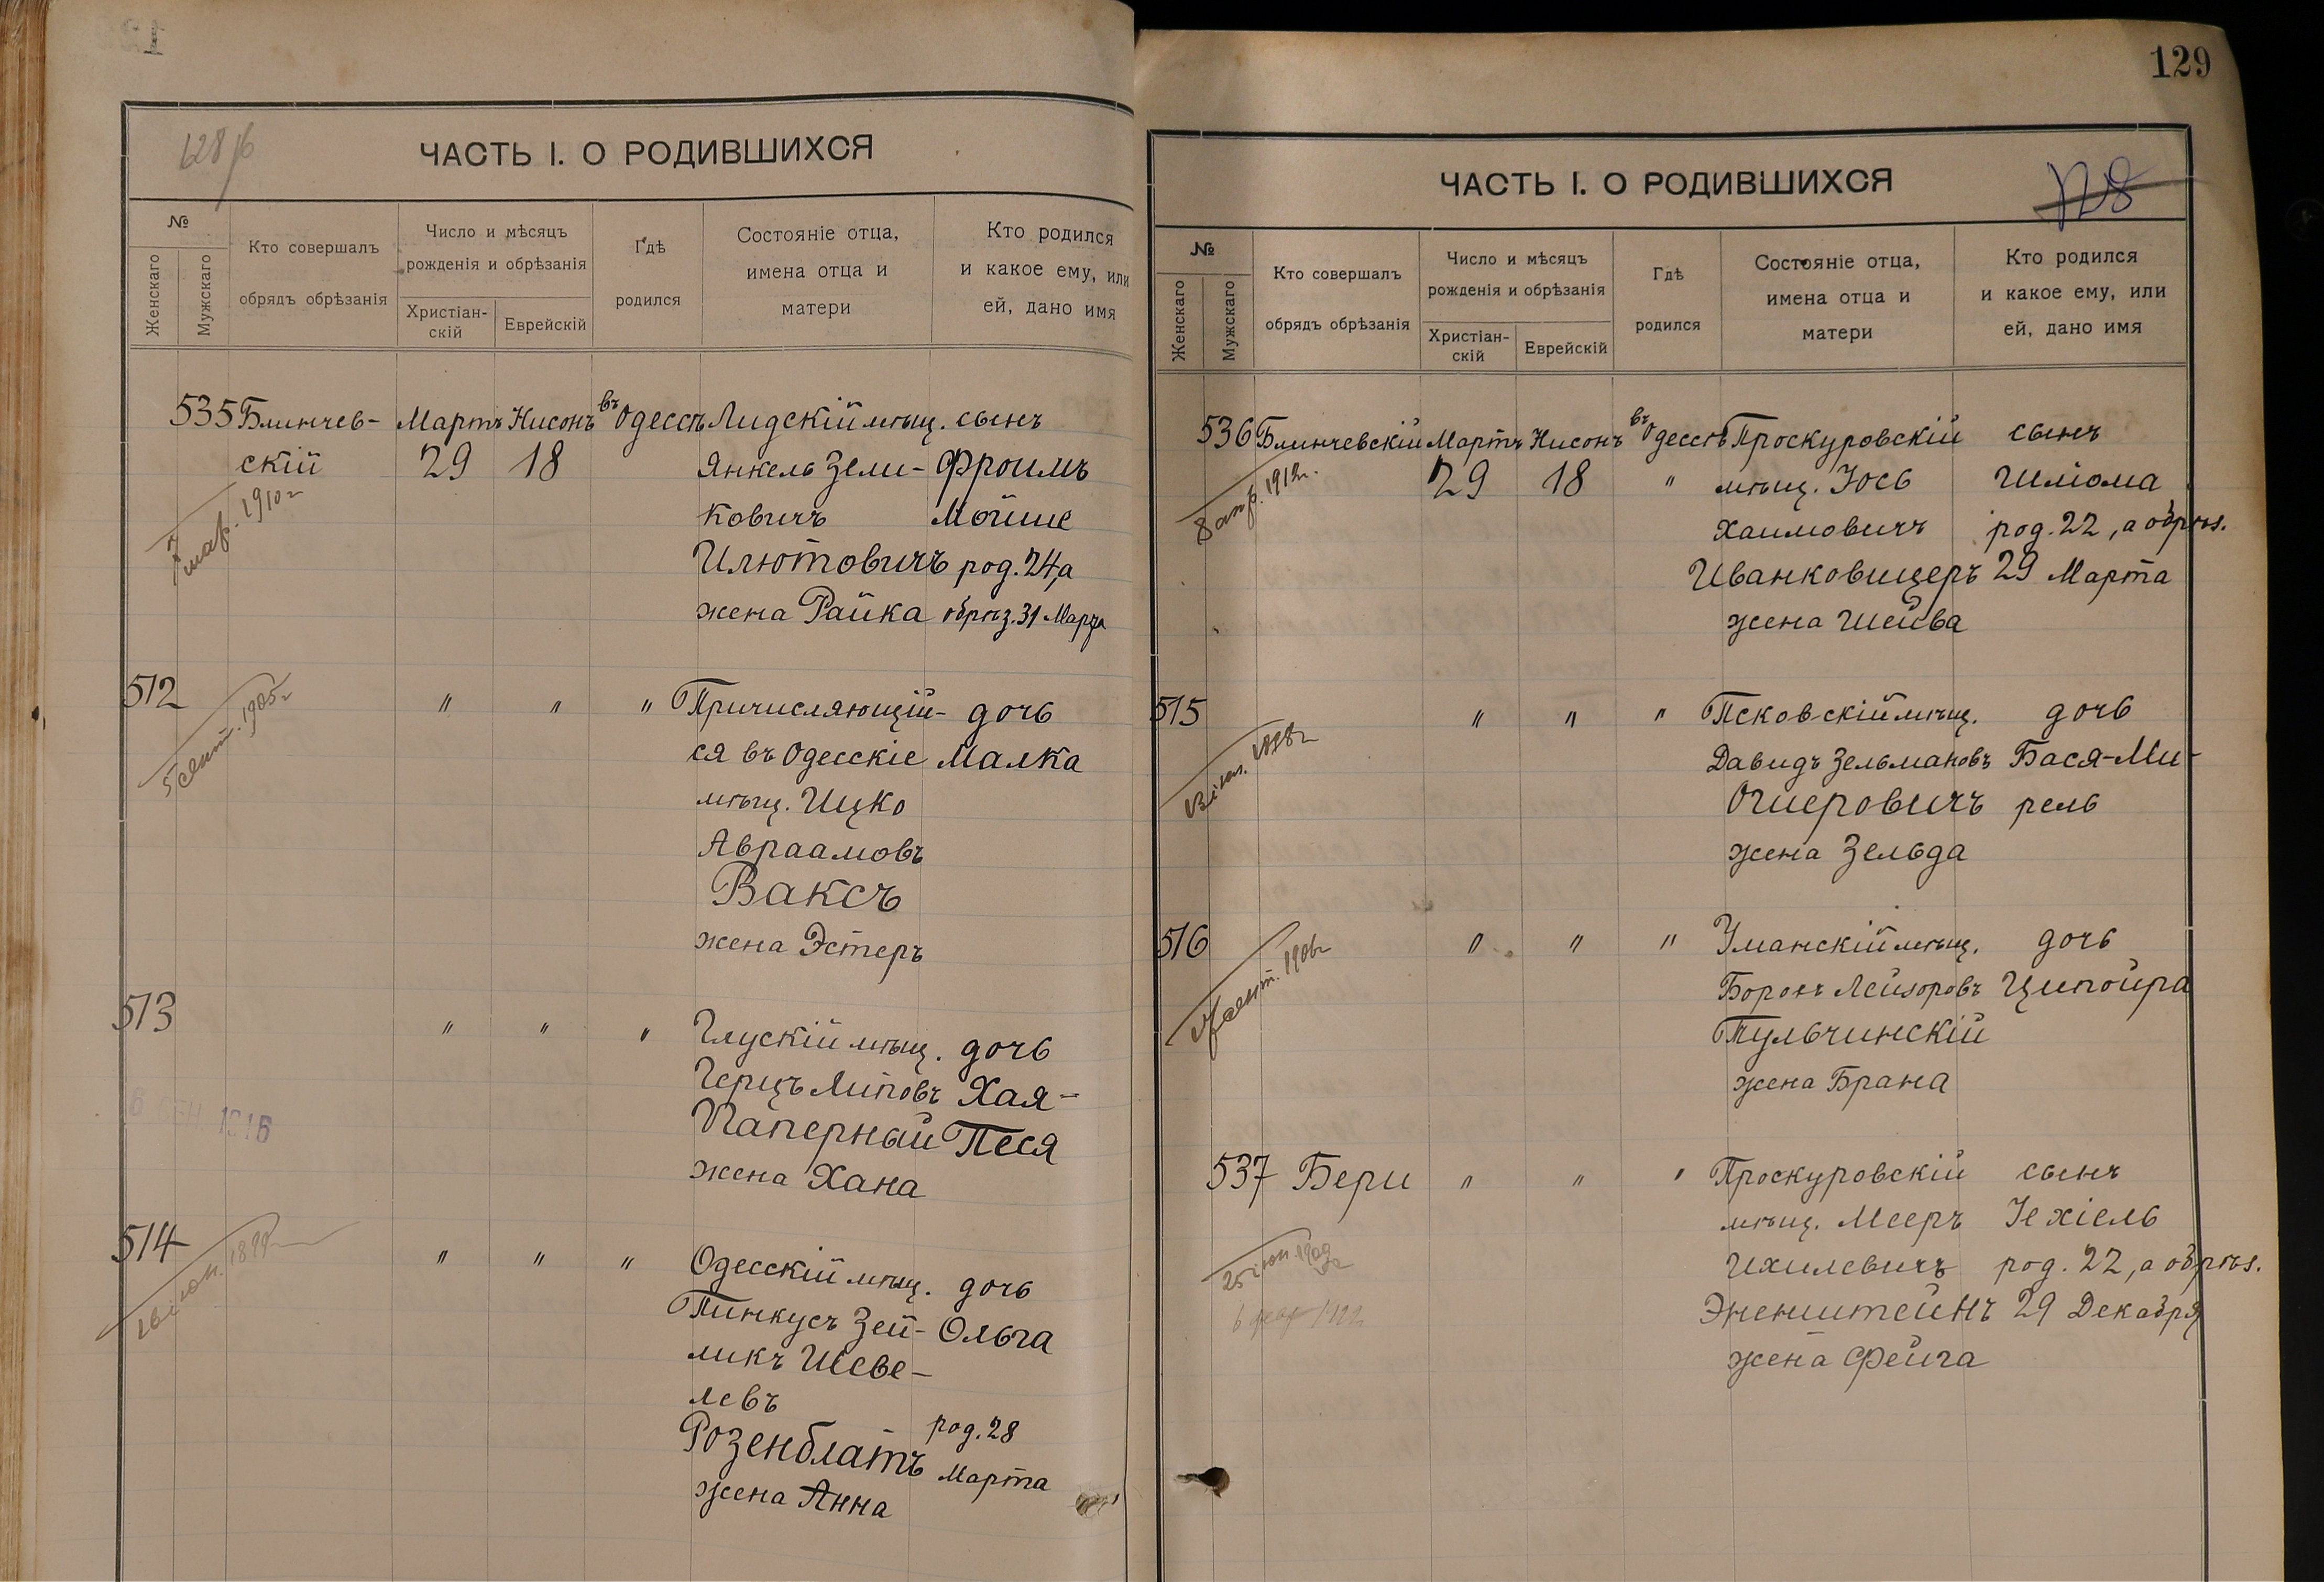 128 об
ЧАСТЬ I. О РОДИВШИХСЯ
№
Женскаго
Мужскаго
Кто совершалъ
обрядъ обрѣзанія
Число и мѣсяцъ
рожденія и обрѣзанія
Христіан-
скій
Еврейскій
Гдѣ
родился
Состояніе отца,
имена отца и
матери
Кто родился
и какое ему, или
ей, дано имя
535 Блинчев- Мартъ Нисонъ въ Одессѣ Лидскій мѣщ. сынъ
скій 29 18 Янкель Зели- Фроимъ
7 мар. 1910 г
ковичъ Мойше
Илютовичъ род. 24, а
жена Райка обрѣз. 31 Марта
512 " " " Причисляющій- дочь
5 сент. 1905 г
ся въ Одесскіе Малка
мѣщ. Ицко
Авраамовъ
Ваксъ
жена Эстеръ
513 " " " Глускій мѣщ. дочь
Герцъ Липовъ Хая-
Паперный Песя
жена Хана
514 " " " Одесскій мѣщ. дочь
Пинкусъ Зей- Ольга
ликъ Шеве-
левъ
Розенблатъ род. 28
жена Анна Марта
129
ЧАСТЬ I. О РОДИВШИХСЯ
128
№
Женскаго
Мужскаго
Кто совершалъ
обрядъ обрѣзанія
Число и мѣсяцъ
рожденія и обрѣзанія
Христіан-
скій
Еврейскій
Гдѣ
родился
Состояніе отца,
имена отца и
матери
Кто родился
и какое ему, или
ей, дано имя
536 Блинчевскій Мартъ Нисонъ въ Одессѣ Проскуровскій сынъ
8 апр. 1912 г.
29 18 " мѣщ. Іось Шліома
Хаимовичъ род. 22, а обрѣз.
Иванковицеръ 29 Марта
жена Шейва
515 " " " Псковскій мѣщ. дочь
Давидъ Зельмановъ Бася-Ми-
Ошеровичъ рель
жена Зельда
516 " " " Уманскій мѣщ. дочь
сент. 1906 г
Борохъ Лейзоровъ Ципойра
Тульчинскій
жена Брана
537 Бери " " " Проскуровскій сынъ
мѣщ. Мееръ Іехіель
25 іюн. 1909
Ихилевичъ род. 22, а обрѣз.
Эненштейнъ 29 Декабря
жена Фейга